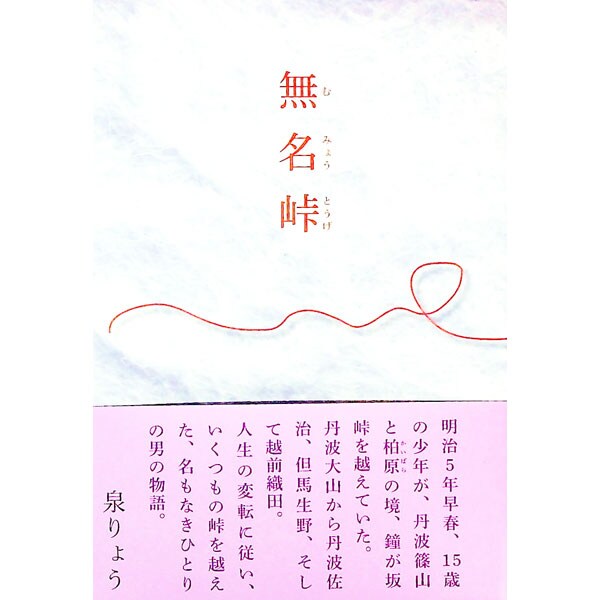 無名峠
む
みょう
とうげ
明治5年早春、15歳
の少年が、丹波篠山
と柏原の境、鐘が坂
かいばら
峠を越えていた。
丹波大山から丹波佐
治、但馬生野、そし
て越前織田。
人生の変転に従い、
いくつもの峠を越え
た、名もなきひとり
の男の物語。
泉りょう